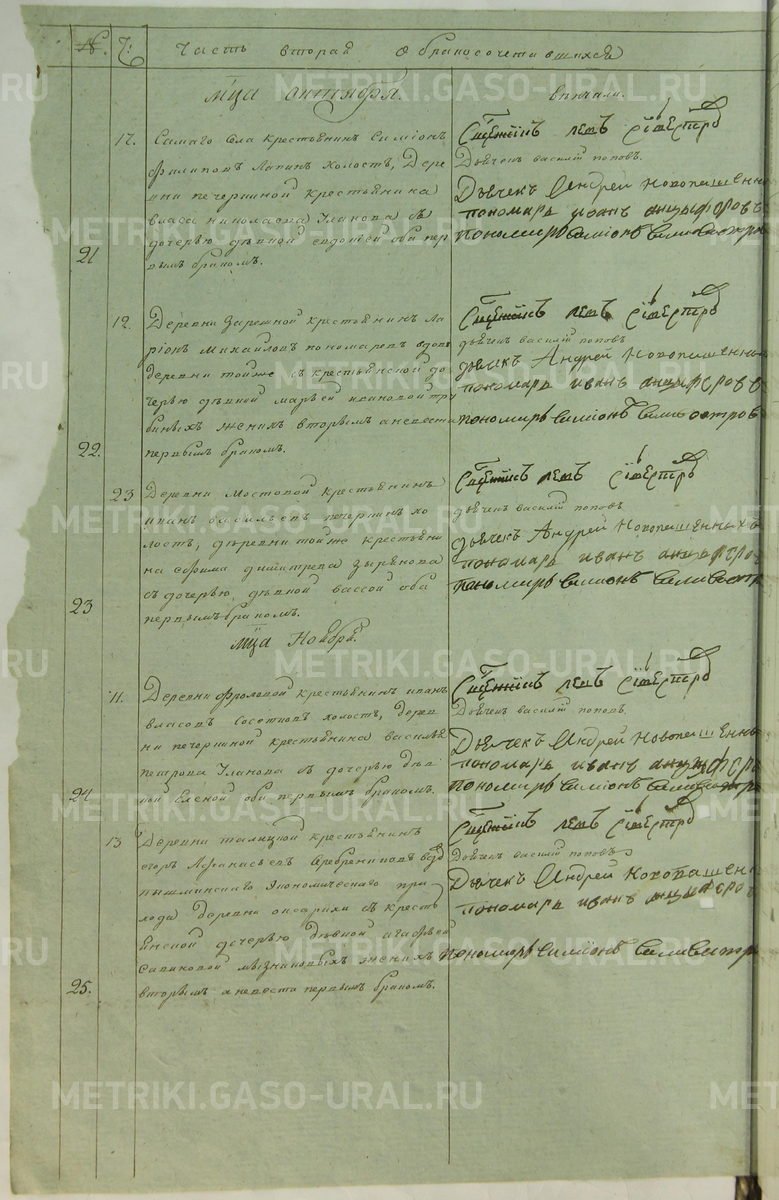 №. Ч: Часть вторая о бракосочетавшихся
Мца октября. венчали.
21 17. Самаго села крестьянинъ Симионъ
Филиповъ Лапинъ холостъ, Дере
вни печоркиной крестьянина
власа николаева Улакова съ
дочерью девкой евдокией оба пер
вымъ бракомъ.
Дьяконъ василий поповъ.
Дьячекъ Андрей Новопашенны
пономарь иоанъ анцыферовъ
пономарь Симионъ Селивестро
22. 12. Деревни Заречной крестьянинъ Ла
рионъ Михайловъ пономаревъ вдовъ
деревни тойже съ крестьянской до
черью девкой марьей ивановой тра
биныхъ жених вторымъ а невеста
первымъ бракомъ.
дьяконъ василий поповъ
дьячекъ Андрей Новопашенны
пономарь иванъ анцыферовъ
пономарь Симионъ Селивестров
23 23 Деревни Мостовой крестьянинъ
иванъ васильевъ печеркинъ хо
лостъ, деревни тойже крестьяни
на ефима димитриева зырянова
съ дочерью девкой вассой оба
первымъ бракомъ.
дьяконъ василий поповъ
дьячекъ Андрей Новопашенныхъ
пономарь иванъ анцыферо
пономарь Симионъ Селивестр
Мца Ноября.
24 11. Деревни Фроловой крестьянинъ иванъ
власовъ Сосновъ холостъ, дерев
ни печоркиной крестьянина василья
петрова Улакова съ дочерью дев
кой Еленой оба первымъ бракомъ.
Дьяконъ василий поповъ.
Дьячекъ Андрей Новопашенны
пономарь иванъ анцыферо
пономарь Симионъ Селивестро
25. 13 Деревни талицкой крестьянинъ
егоръ Афанасьевъ Серебрениковъ вдовъ
пышминскаго Экономическаго при
хода деревни оксарихи съ кресть
янской дочерью девкой агафьей
савиновой мызниковыхъ жених
вторымъ а невеста первымъ бракомъ.
Дьяконъ василий поповъ
Дьячекъ Андрей Новопашенн
пономарь иванъ анцыферо
пономарь Симионъ Селивестр
METRIKI.GASO-URAL.RU